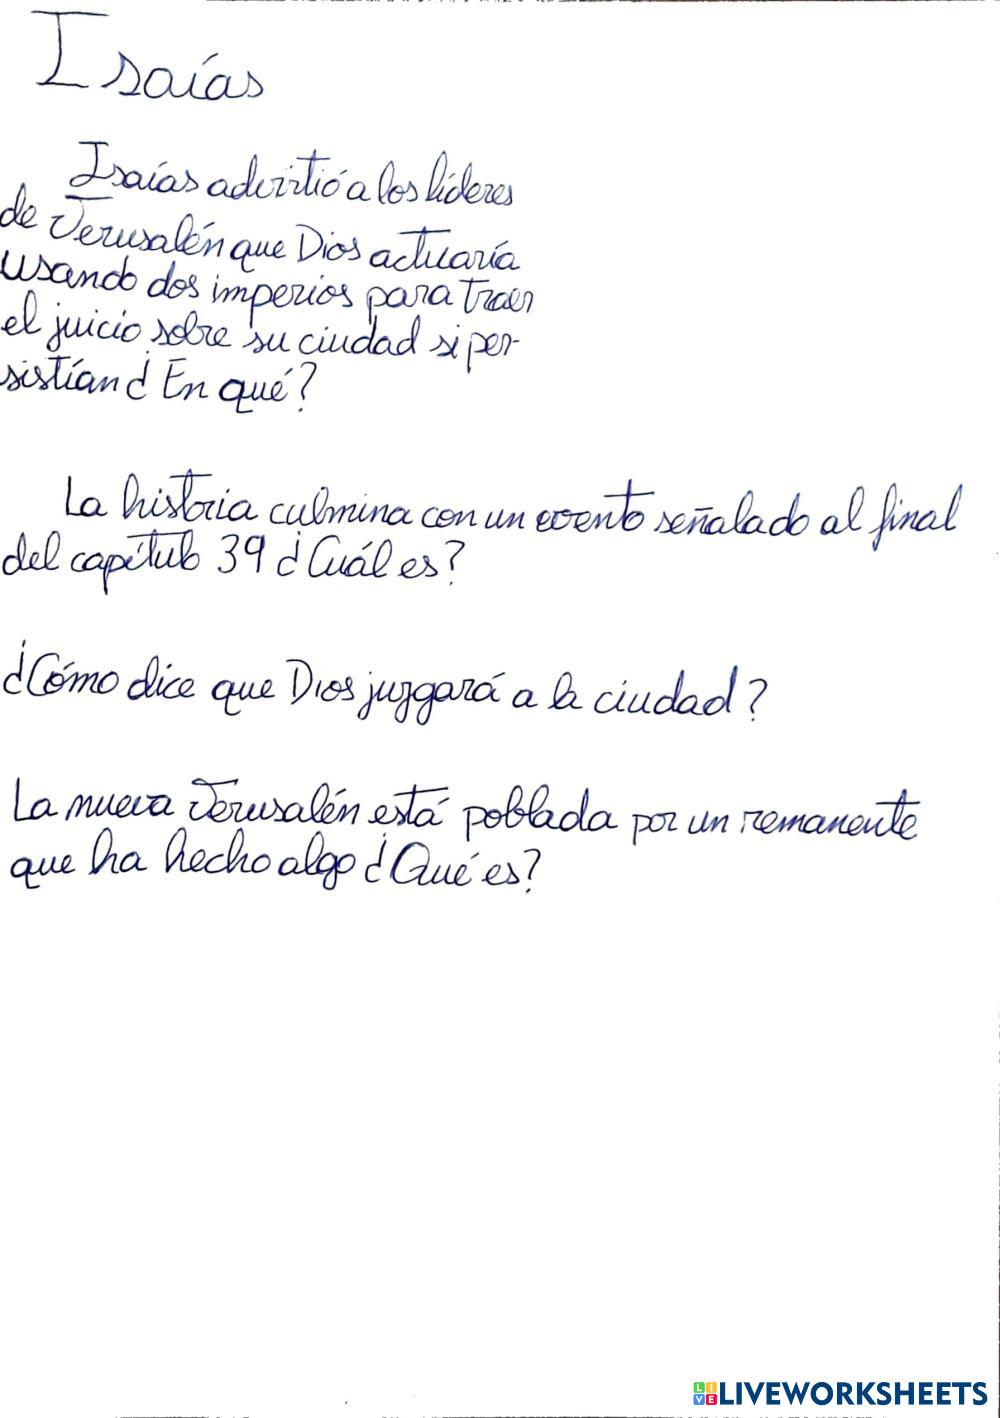 Isaías
Isaías advirtió a los líderes
de Jerusalén que Dios actuaría
usando dos imperios para traer
el juicio sobre su ciudad si per-
sistían ¿ En qué?
La historia culmina con un evento señalado al final
del capítulo 39 ¿Cuál es?
¿Cómo dice que Dios juzgará a la ciudad?
La nueva Jerusalén está poblada por un remanente
que ha hecho algo ¿Qué es?
LIVEWORKSHEETS